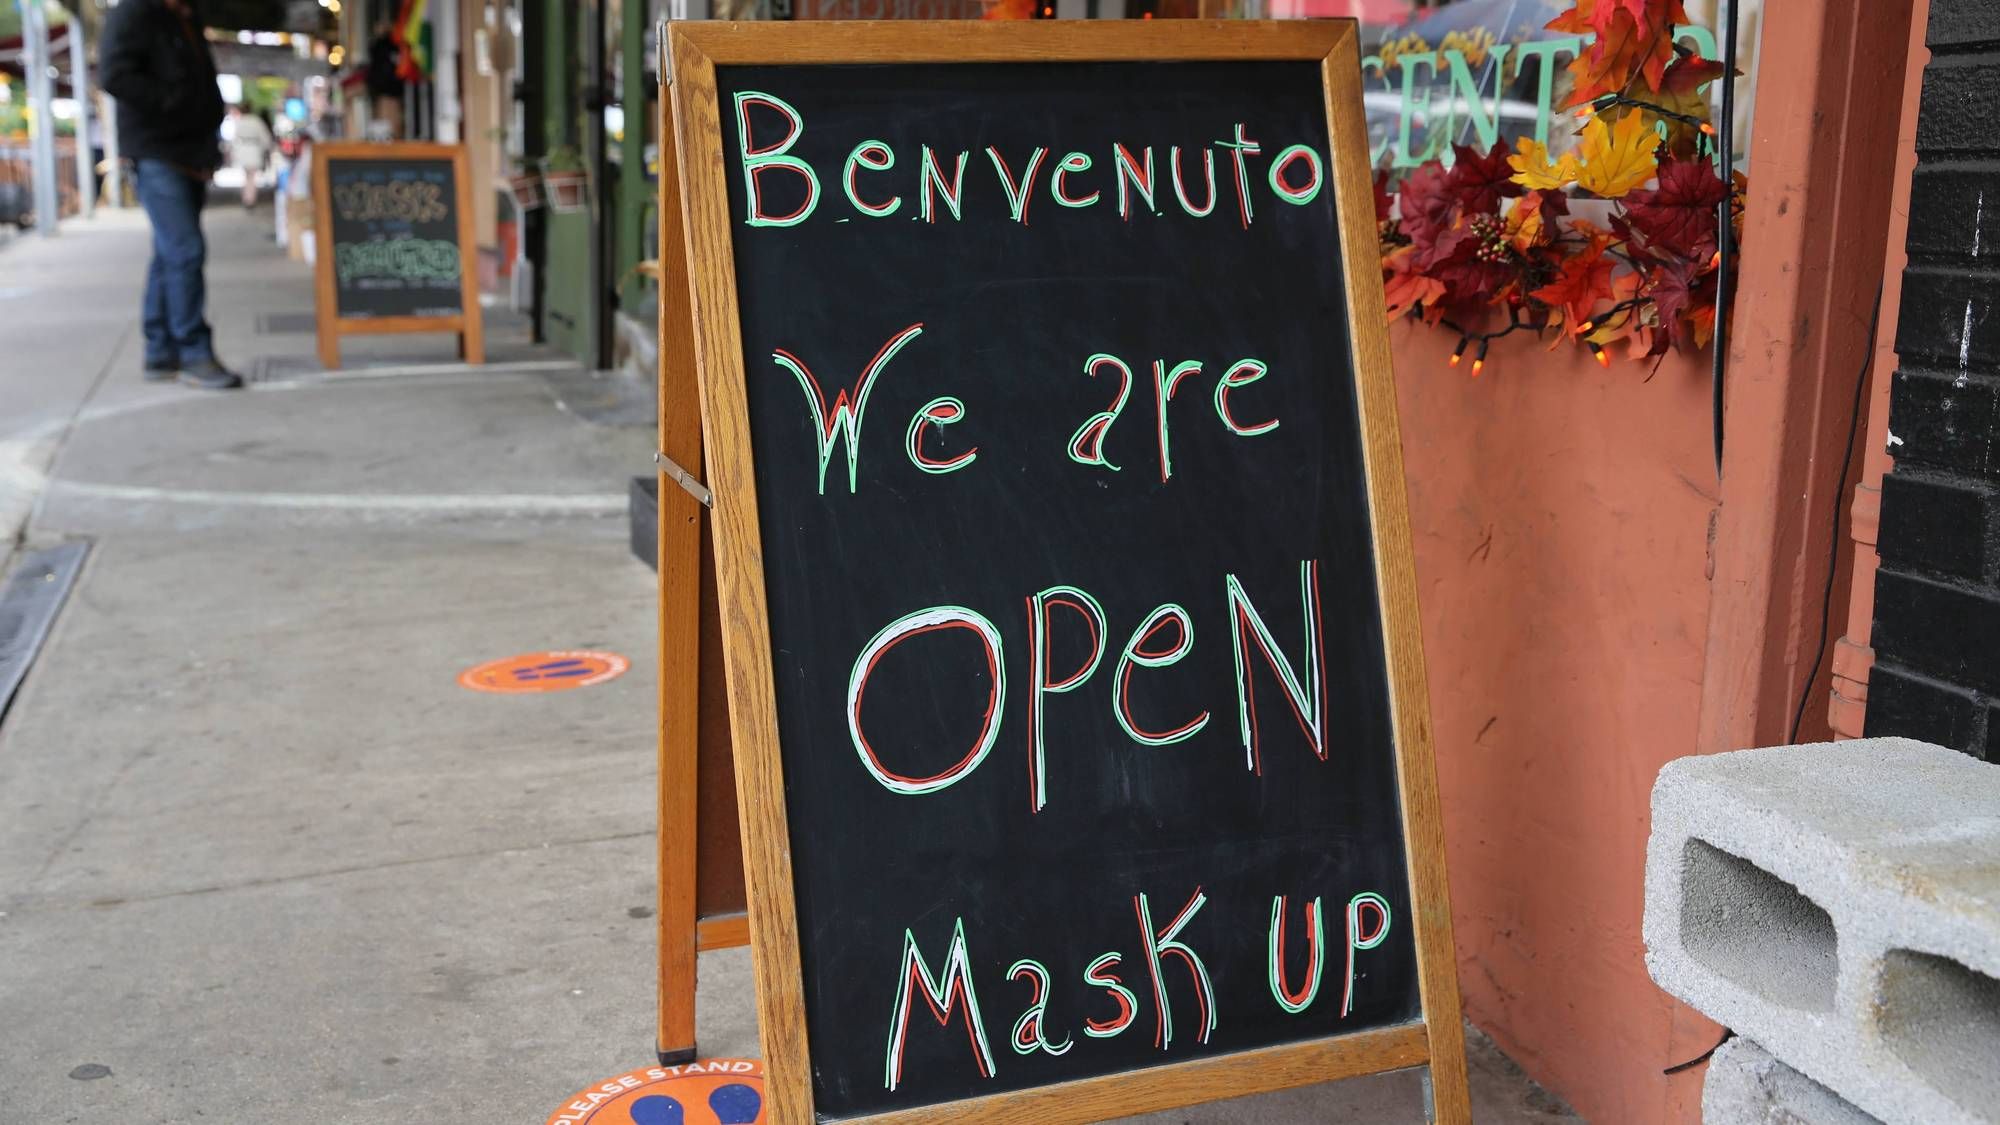 Benvenuto
We are
OPeN
Mask UP
PLEASE STAND
CENTER